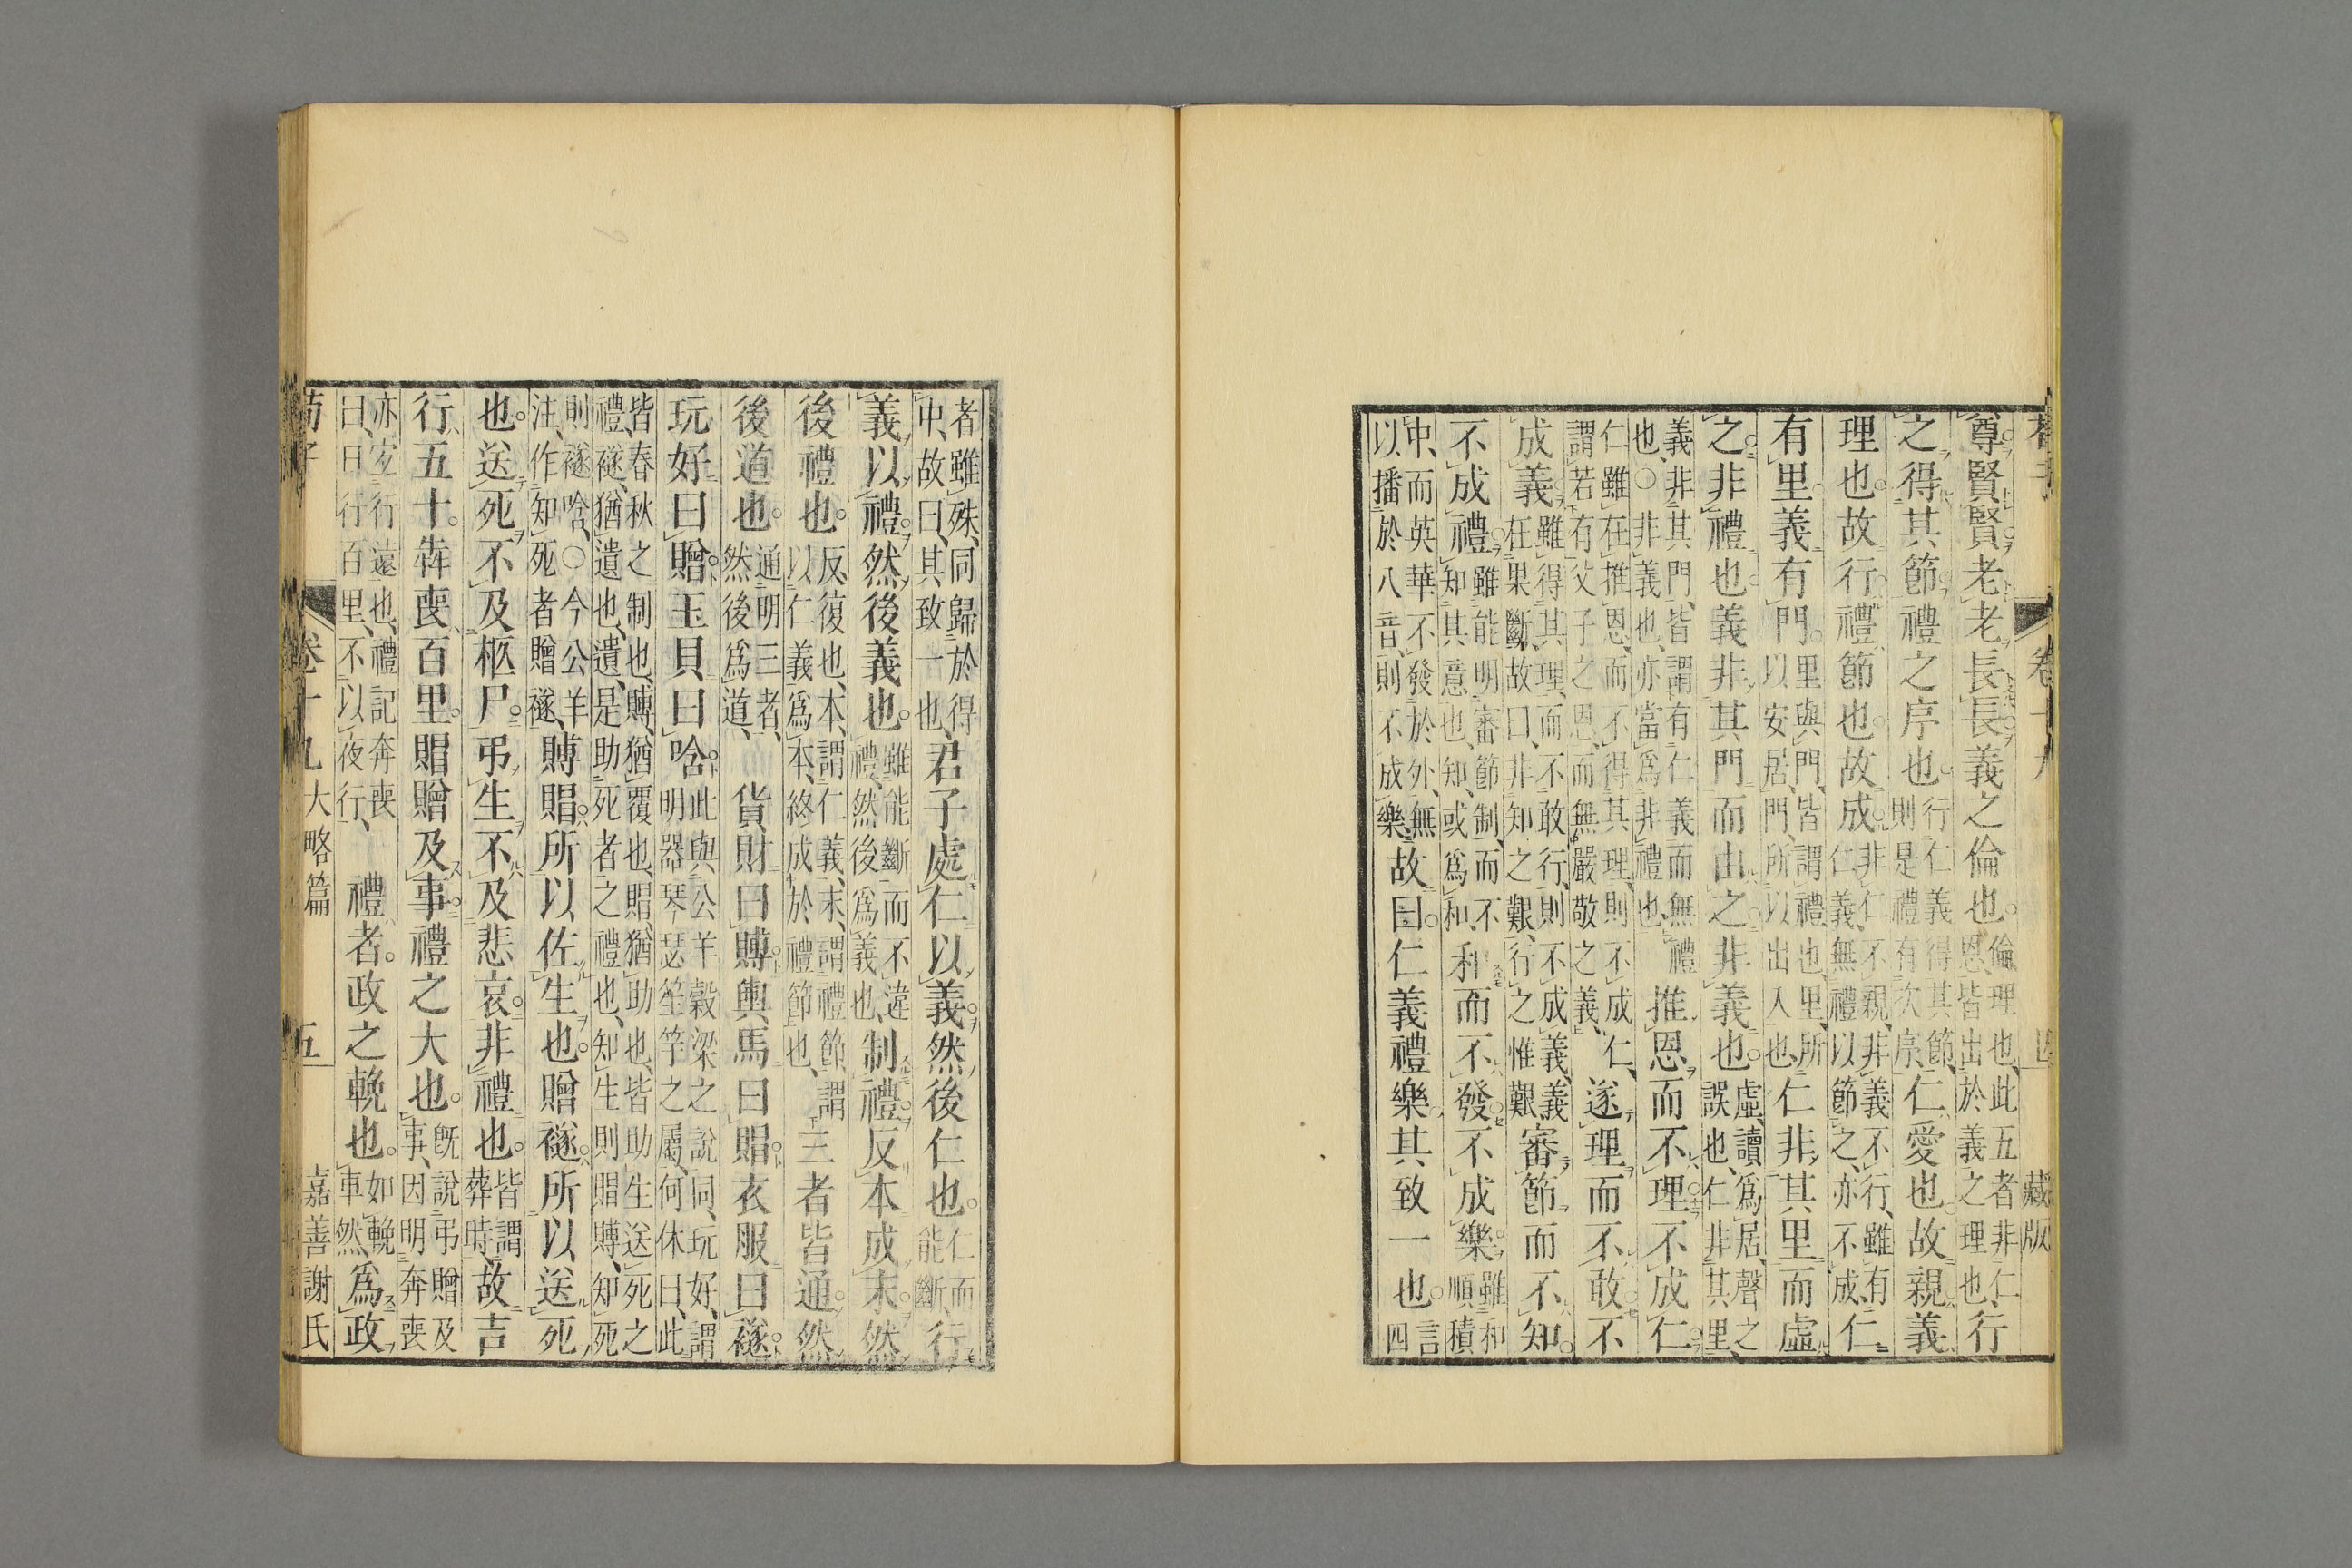 荀子　卷十九　四　藏版
尊賢賢老老長長義之倫也。倫理也、此五者非仁恩、皆出於義之理也、行
之得其節禮之序也。行仁義得其節、則是禮有次序、仁愛也故親義
理也。故行禮節也。故成。非仁不親、非義不行、雖有仁義、無禮以節之、亦不成、仁
有里義有門。里與門、皆謂禮也、里所以安居、門所以出入也、仁非其里而虛
之。非禮也義非其門而由之。非義也。虛、讀爲居、聲之誤也、仁非其里、
義非其門、皆謂有仁義而無禮也、○非義也、亦當爲非禮也、推恩而不理不成仁
仁雖在推恩、而不得其理、則不成仁、謂若有父子之恩、而無嚴敬之義、遂理而不敢不
成義雖得其理、而不敢行、則不成義、義在果斷、故曰、非知之艱、行之惟艱審節而不知
不成禮雖能明審節制、而不知其意也、知、或爲和、和而不發不成樂雖和順積
中、而英華不發於外、無以播於八音、則不成樂、故曰仁義禮樂其致一也。言四
者雖殊、同歸於得中、故曰、其致一也、君子處仁以義然後仁也。仁而能斷、行
義以禮然後義也。雖能斷而不違禮、然後爲義也、制禮反本成末然
後禮也。反、復也、本、謂仁義、末、謂禮節、謂以仁義爲本、終成於禮節也、三者皆通然
後道也。通明三者、然後爲道、貨財曰賻輿馬曰賵衣服曰襚
玩好曰贈玉貝曰唅此與公羊穀梁之說同、玩好、謂明器琴瑟笙竽之屬、何休曰、此
皆春秋之制也、賻、猶覆也、賵、猶助也、皆助生送死之禮、襚、猶遺也、遺、是助死者之禮也、知生則賵賻、知死
則襚唅、○今公羊注、作知死者贈襚、賻賵所以佐生也。贈襚所以送死
也。送死不及柩尸。弔生不及悲哀。非禮也。皆謂葬時、故吉
行五十。犇喪百里。賵贈及事。禮之大也。旣說弔贈及事、因明奔喪
亦宜行遠也、禮記奔喪曰、日行百里、不以夜行、禮者。政之輓也。如輓車然、爲政
荀子　卷十九　大略篇　五　嘉善謝氏